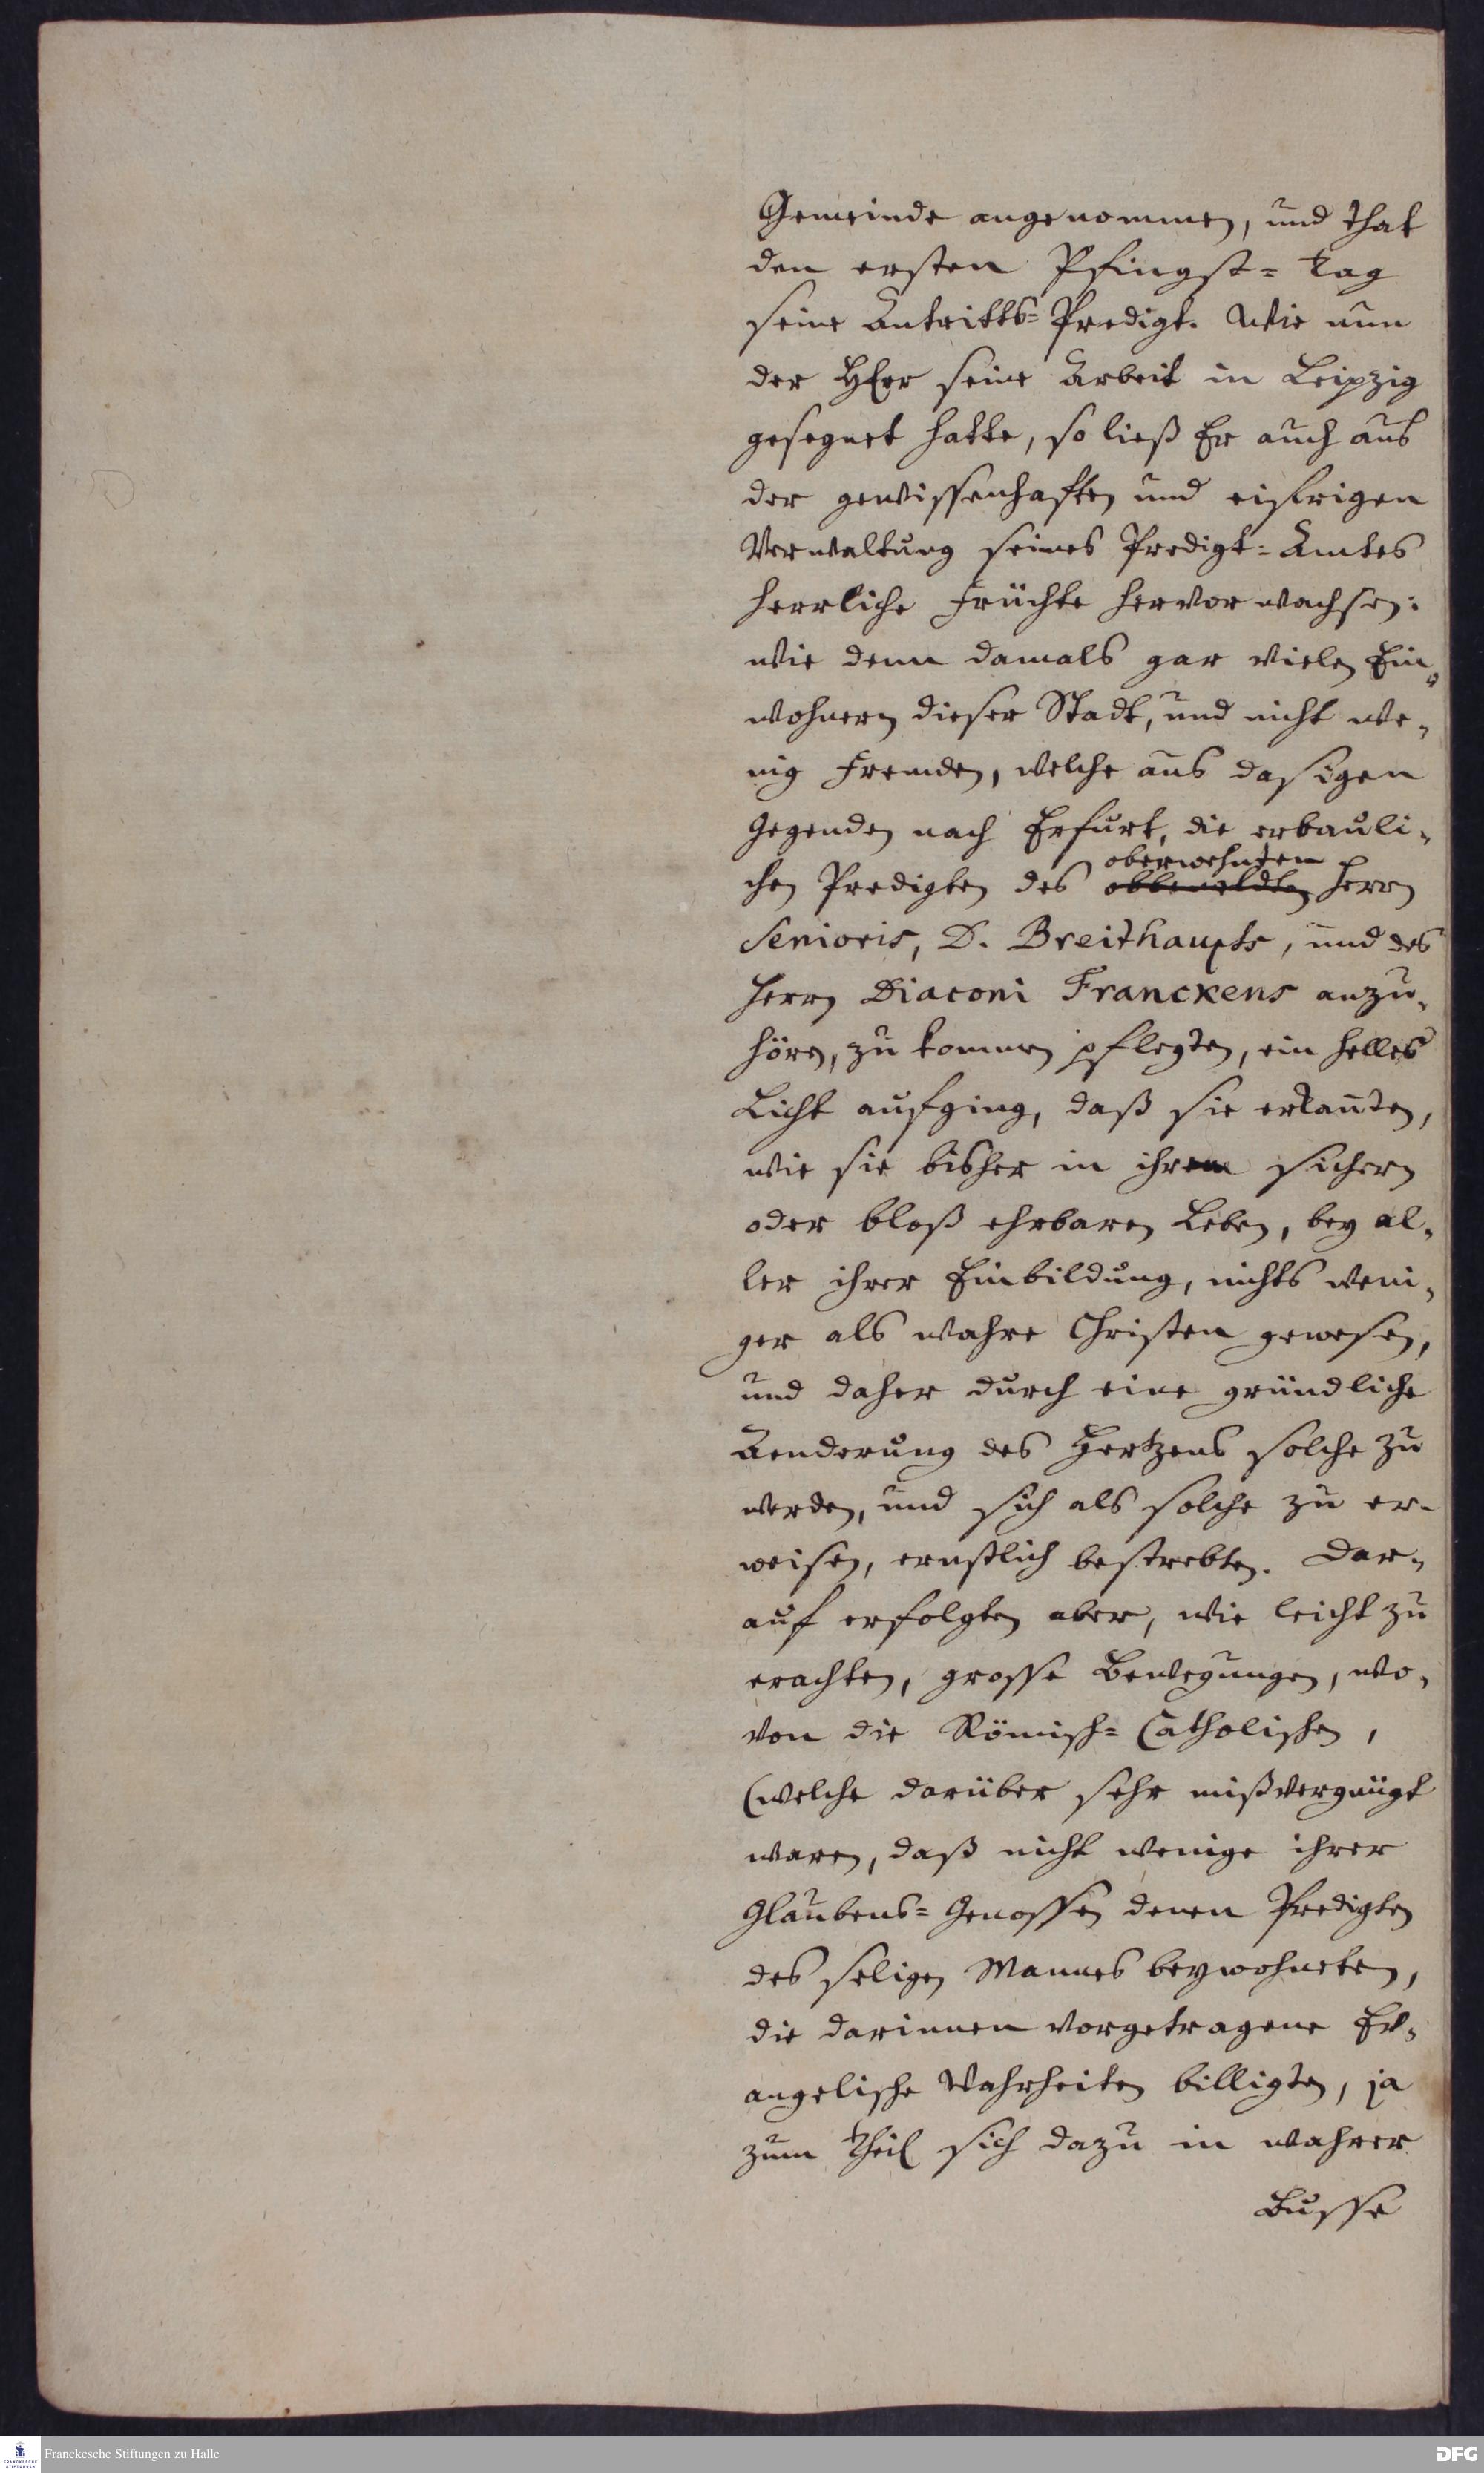 Gemeinde angenommen, und that
den ersten Pfingst= Tag
seine Antritts=Predigt. Wie nun
der HErr seine Arbeit in Leipzig
gesegnet hatte, so ließ Er auch aus
der gewissenhaften und eifrigen
Verwaltung seines Predigt=Amtes
herrliche Früchte hervor wachsen:
wie denn damals gar vielen Ein=
wohnern dieser Stadt, und nicht we=
nig Fremden, welche aus dasigen
Gegenden nach Erfurt, die erbauli=
oberwehnten
chen Predigten des obbemeldten Herrn
Senioris, D. Breithaupts, und des
Herrn Diaconi Franckens anzu=
hören, zu kommen pflegten, ein helles
Licht aufging, daß sie erkanten,
wie sie bisher in ihrem sichern
oder bloß ehrbaren Leben, bey al=
ler ihrer Einbildung, nichts weni=
ger als wahre Christen gewesen,
und daher durch eine gründliche
Aenderung des Hertzens solche zu
werden, und sich als solche zu er=
weisen, ernstlich bestrebten. Dar=
auf erfolgten aber, wie leicht zu
erachten, grosse Bewegungen, wo=
von die Römisch=Catholischen,
(welche darüber sehr mißvergnügt
waren, daß nicht wenige ihrer
Glaubens=Genossen denen Predigten
des seligen Mannes beywohneten,
die darinnen vorgetragene Ev=
angelische Wahrheiten billigten, ja
zum Theil sich dazu in wahrer
Busse
Franckesche Stiftungen zu Halle
FRANCKESCHE STIFTUNGEN
DFG